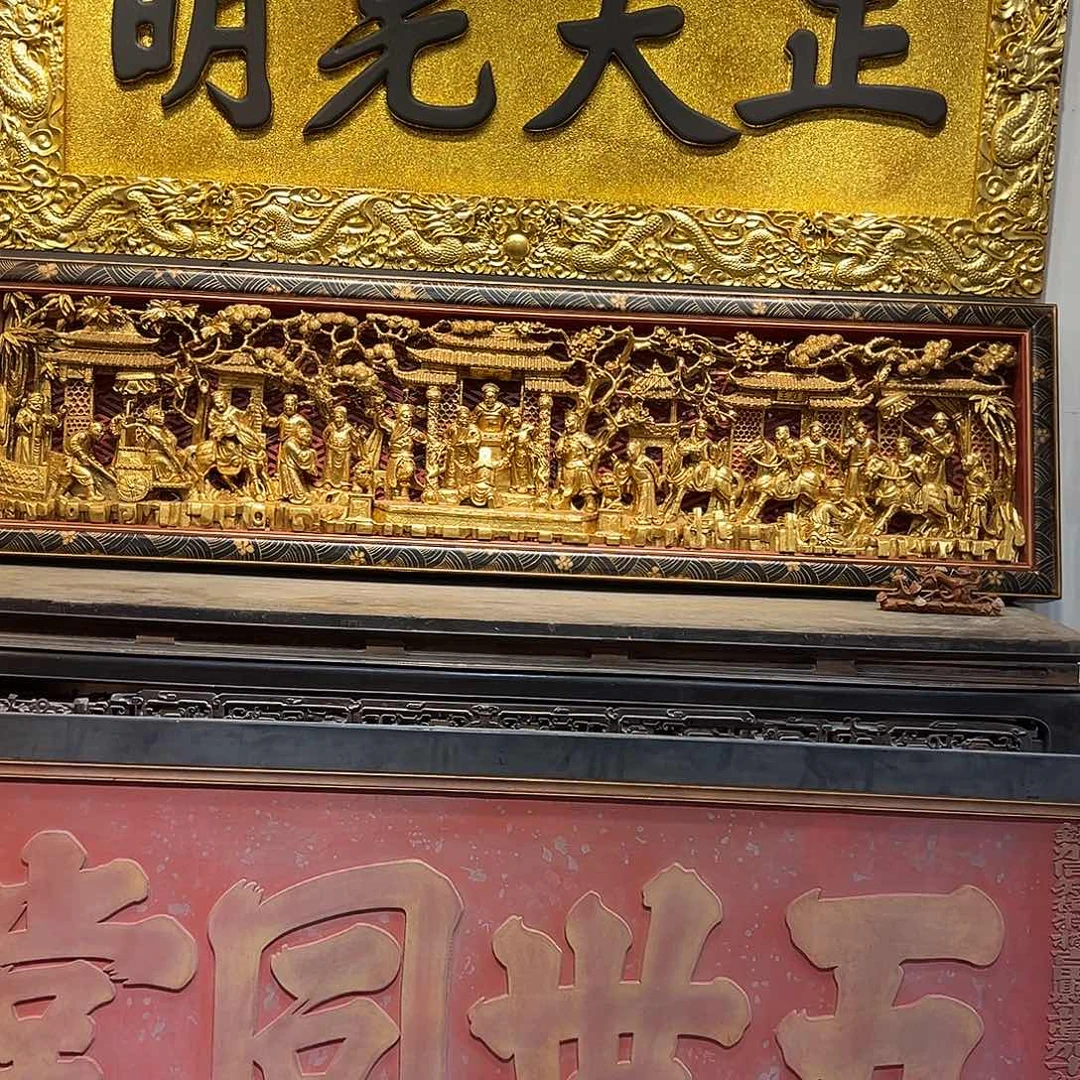 正大光明
五世同堂